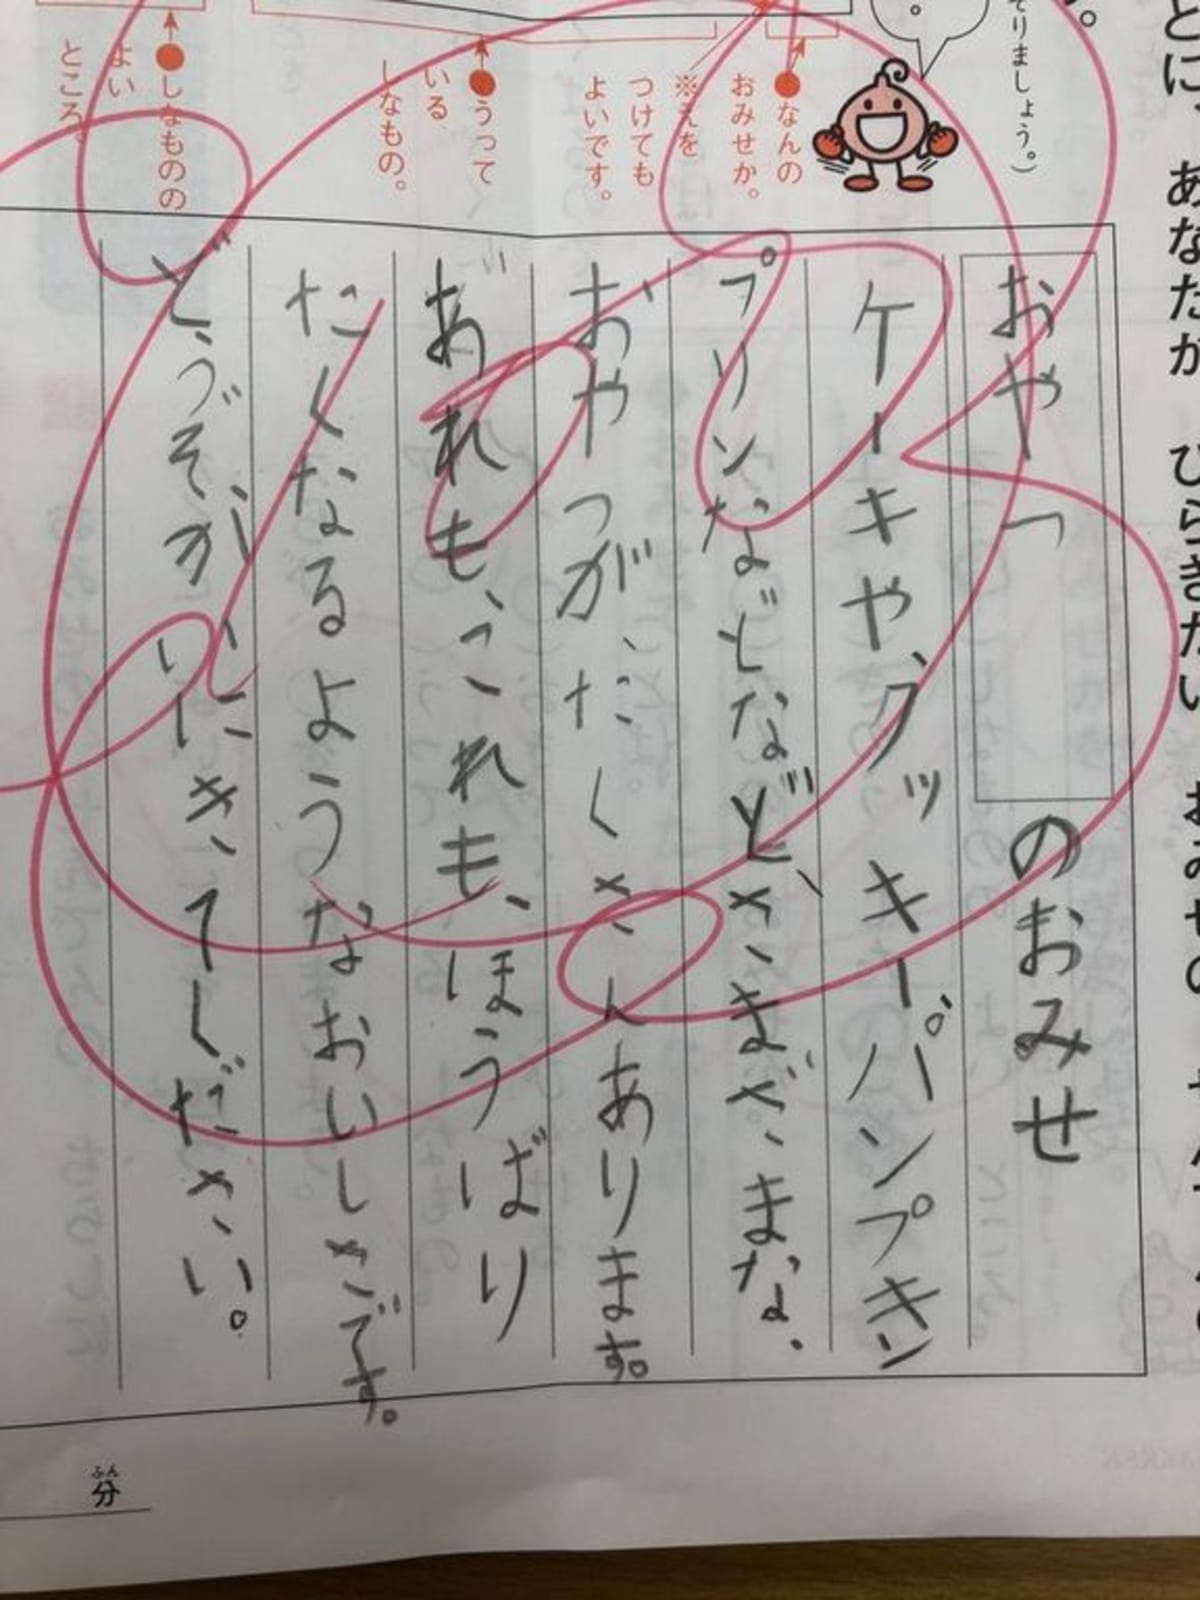 とに、あなたが ひらきたい おみせの
そりましょう。）
●なんの
おみせか。
※えを
つけても
よいです。
●うって
いる
しなもの。
●しなものの
よい
ところ。
おやつのおみせ
ケーキや、クッキーパンプキン
プリンなどなどなど、さまざまな、
おやつが、たくさんあります。
あれも、これも、ほうばり
たくなるようなおいしさです。
どうぞ
にきてください。
ふん
分